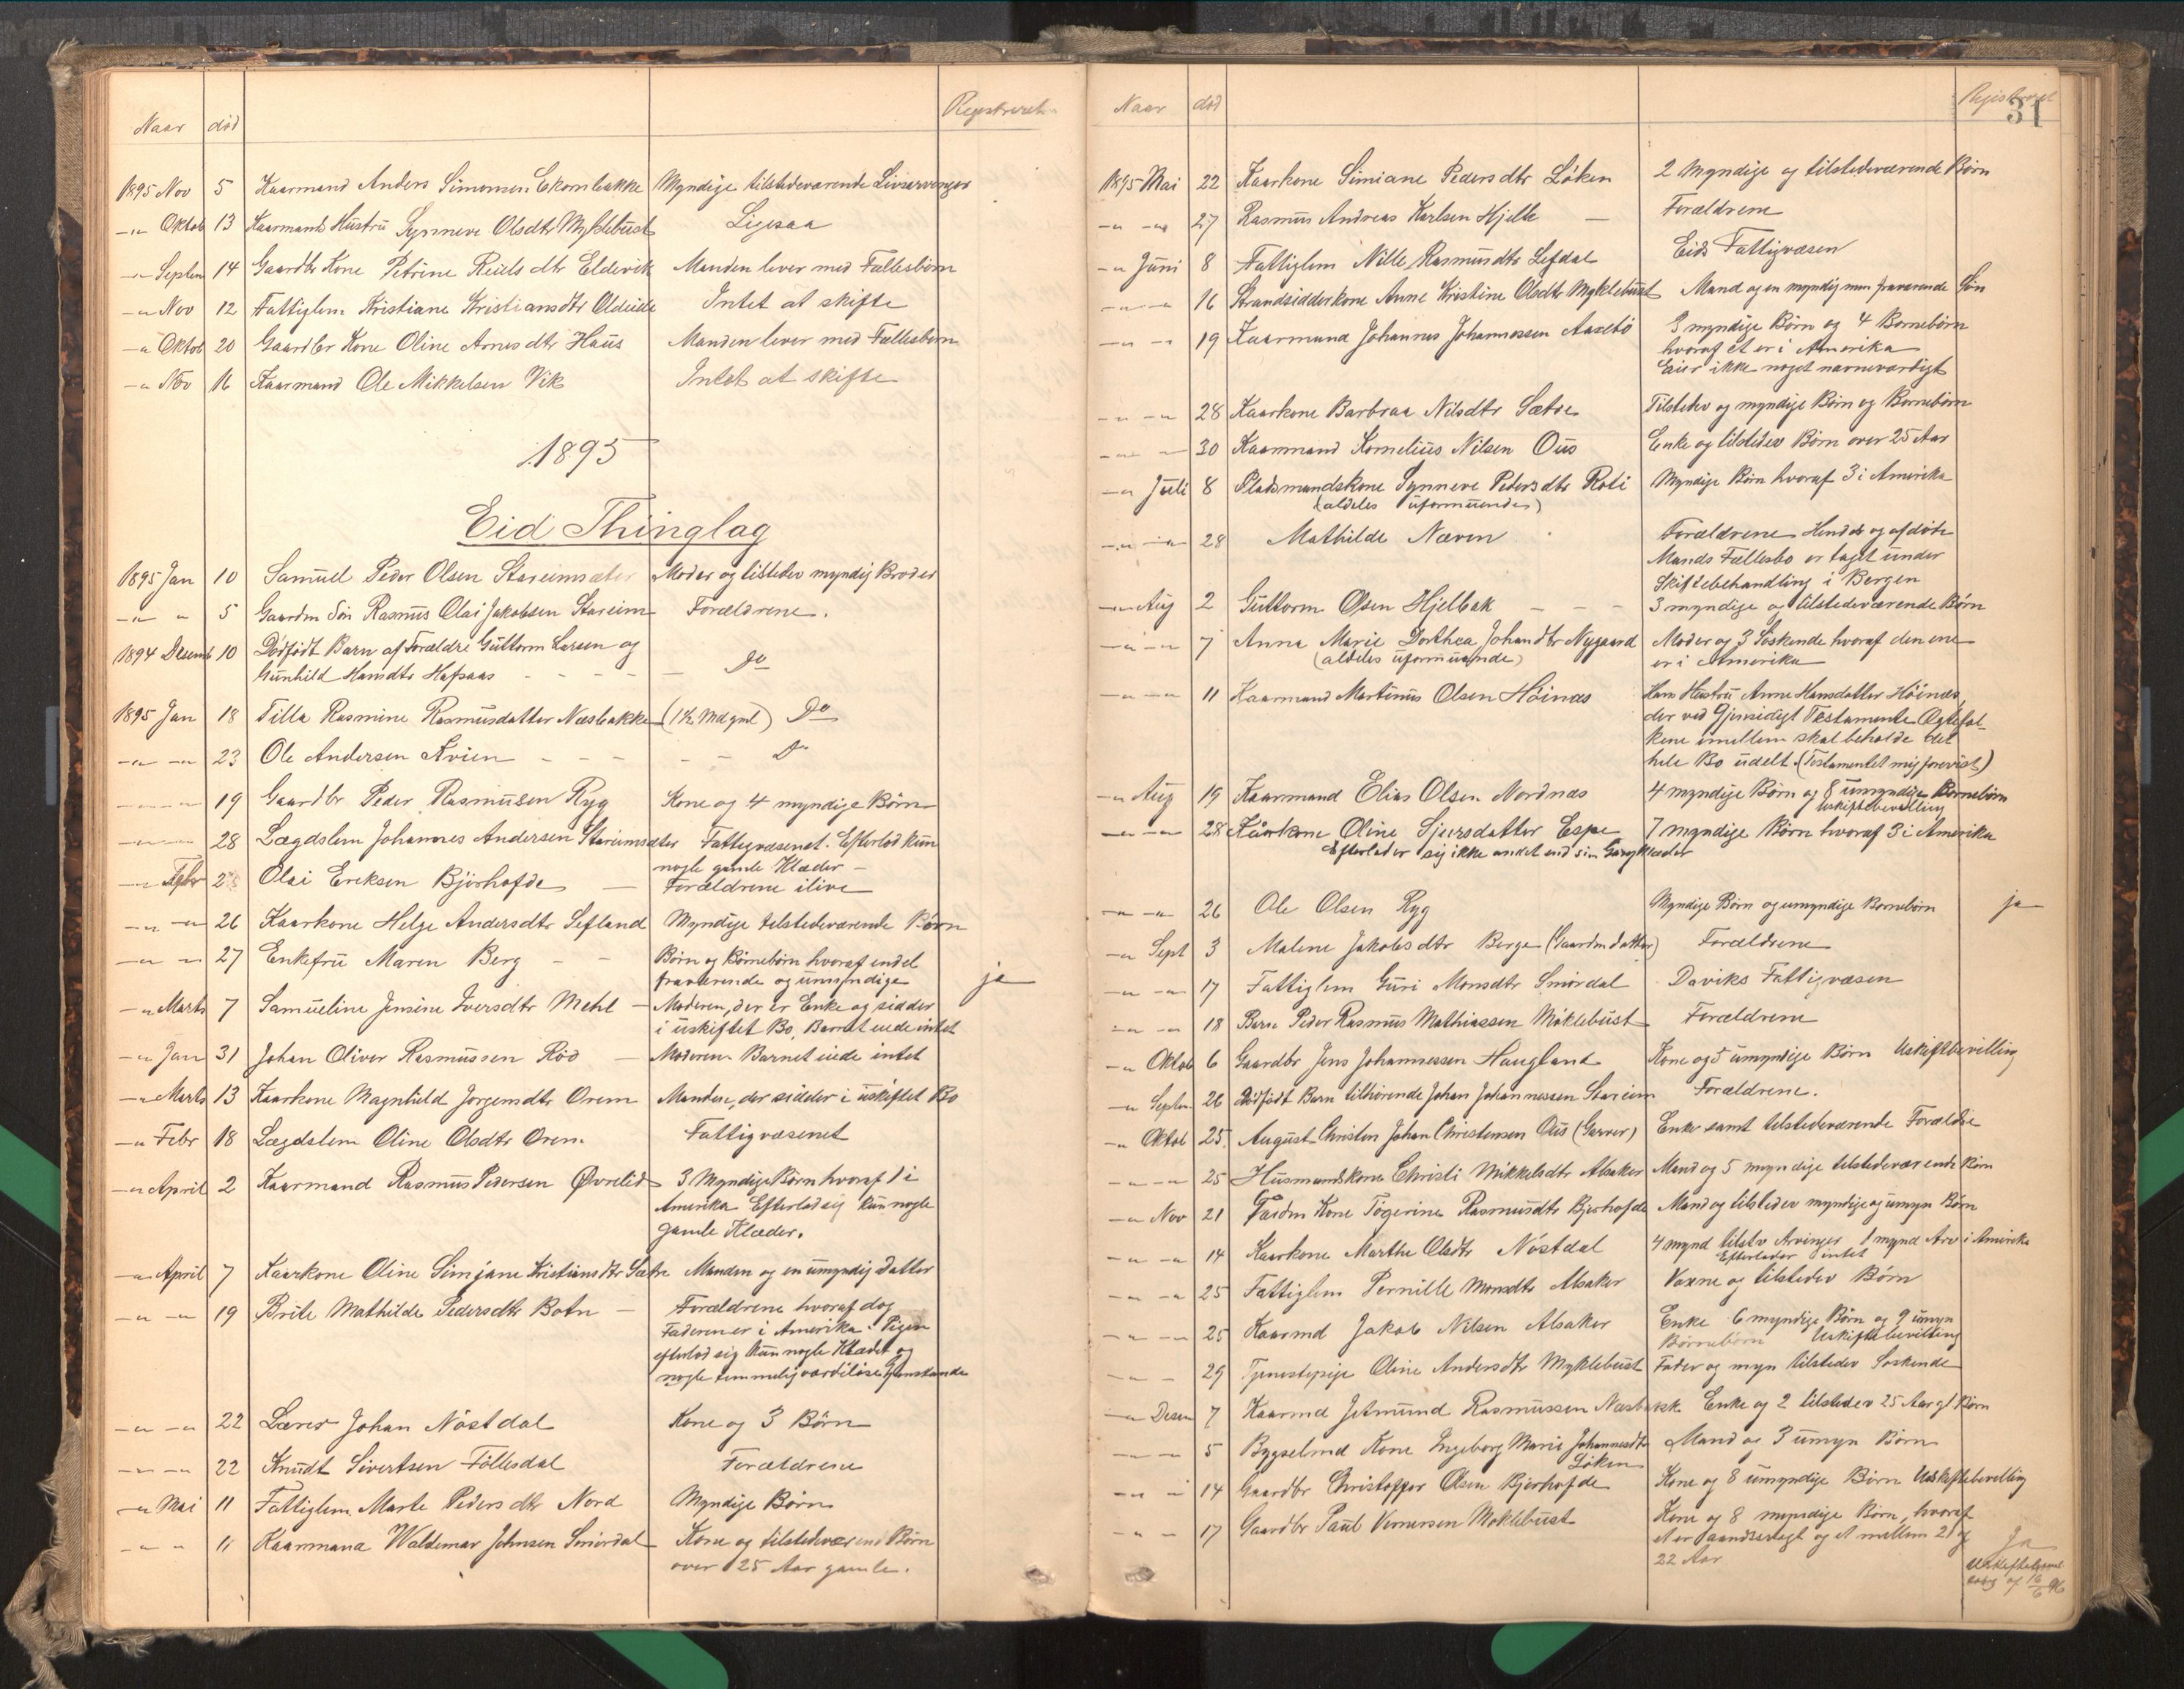 Naar død Registreret
1895 Nov 5 Kaarmand Anders Simonsen Ekornbakke Myndige tilstedeværende Livsarvinger
-"- Oktob 13 Kaarmands Hustru Synneve Olsdtr Myklebust Ligesaa
-"- Septem 14 Gaardbr Kone Petrine Reiels dtr Eldevik Manden lever med Fællesbørn
-"- Nov 12 Fattiglem Kristiane Kristiansdtr Oldeide Intet at skifte
-"- Oktob 20 Gaardbr Kone Oline Arnes dtr Haus Manden lever med Fællesbørn
-"- Nov 16 Kaarmand Ole Mikkelsen Vik Intet at skifte
1895
Eid Thinglag
1895 Jan 10 Samuel Peder Olsen Stareimsæter Moder og tilstedev myndig Broder
-"- " 5 Gaardm Søn Rasmus Olai Jakobsen Stareim Forældrene.
1894 Desemb 10 Dødfødt Barn af Forældre Guttorm Larsen og
Gunhild Hansdtr Hafsaas - - - - Do
1895 Jan 18 Tilla Rasmine Rasmusdatter Næsbakke (1½ Md gml) Do
-"- -"- 23 Ole Andersen Kvien - - - - - Do
-"- -"- 19 Gaardbr Peder Rasmusen Ryg Kone og 4 myndige Børn
-"- -"- 28 Lægdslem Johannes Andersen Stareimsæter Fattigvæsenet. Efterlod kun
nogle gamle Klæder -
-"- Febr 2 Olai Eriksen Bjørhofde - Forældrene ilive
-"- -"- 26 Kaarkone Helge Andersdtr Sefland Myndige tilstedeværende Børn
-"- -"- 27 Enkefru Maren Berg - - Børn og Børnebørn hvoraf endel
fraværende og umyndige ja
-"- Marts 7 Samueline Jensine Iversdtr Mehl - Moderen, der er Enke og sidder
i uskiftet Bo. Barnet eiede intet
-"- Jan 31 Johan Oliver Rasmussen Rød - Moderen Barnet eiede intet
-"- Marts 13 Kaarkone Magnhild Jørgensdtr Orem Manden, der sidder i uskiftet Bo
-"- Febr 18 Lægdslem Oline Olsdtr Orem Fattigvæsenet
-"- April 2 Kaarmand Rasmus Pedersen Øvrelid 3 Myndige Børn hvoraf 1 i
Amerika Efterlod sig kun nogle
gamle Klæder.
-"- April 7 Kaarkone Oline Simjane Kristiansdtr Sætre Manden og en umyndig Datter
-"- -"- 19 Brite Mathilde Pedersdtr Botn - Forældrene hvoraf dog
Faderen er i Amerika. Pigen
efterlod sig kun nogle Klæder og
nogle temmelig værdiløse Gjenstande
-"- -"- 22 Lærer Johan Nøstdal Kone og 3 Børn
-"- -"- 22 Knudt Sivertsen Føllesdal Forældrene
-"- Mai 11 Fattiglem Marte Peders dtr Nord Myndige Børn
-"- " 11 Kaarmand Waldemar Johnsen Smørdal Kone og tilstedeværend Børn
over 25 Aar gamle.
Naar død Registreret
31
1895 Mai 22 Kaarkone Simiane Peders dtr Løken 2 Myndige og tilstedeværende Børn
-"- -"- 27 Rasmus Andreas Karlsen Hjelle - Forældrene
-"- Juni 8 Fattiglem Nille Rasmusdtr Lefdal Eids Fattigvæsen
-"- -"- 16 Strandsidderkone Anne Kristine Olsdtr Myklebust Mand og en myndig men fraværende Søn
-"- -"- 19 Kaarmand Johannes Johannessen Aasebø 3 myndige Børn og 4 Børnebørn
hvoraf et er i Amerika
Eier ikke noget nævneværdigt
-"- -"- 28 Kaarkone Barbraa Nilsdtr Sætre Tilstedev og myndige Børn og Børnebørn
-"- -"- 30 Kaarmand Kornelius Nilsen Ous Enke og tilstedev Børn over 25 Aar
-"- Juli 8 Pladsmandskone Synneve Petersdtr Roti Myndige Børn hvoraf 3 i Amerika
(aldeles uformuendes)
-"- -"- 28 Mathilde Næren Forældrene Hendes og afdøde
Mands Fællesbo er taget under
Skiftebehandling i Bergen
-"- Aug 2 Guttorm Olsen Hjelbak - - - 3 myndige og tilstedeværende Børn
-"- -"- 7 Anna Marie Dorthea Johandtr Nygaard Moder og 3 Søskende hvoraf den ene
(aldeles uformuende) er i Amerika
-"- -"- 11 Kaarmand Martinus Olsen Høinæs Hans Hustru Anne Hansdatter Høinæs,
der ved Gjensidigt Testamente Ægtefol-
kene imellem skal beholde det
hele Bo udelt. (Testamentet mig forevist)
-"- Aug 19 Kaarmand Elias Olsen Nordnæs 4 myndige Børn og 8 umyndige Børnebørn
Uskiftebevilling
-"- -"- 28 Kaarkone Oline Sjursdatter Espe 7 myndige Børn hvoraf 3 i Amerika
Efterlader sig ikke andet end sin Gangklæder
-"- -"- 26 Ole Olsen Ryg Myndige Børn og umyndige Børnebørn ja
-"- Sept 3 Malene Jakobs dtr Berge (Gaardm datter) Forældrene
-"- -"- 17 Fattiglem Guri Monsdtr Smørdal Daviks Fattigvæsen
-"- -"- 18 Barn Peder Rasmus Mathiassen Møklebust Forældrene
-"- Oktob 6 Gaardbr Jens Johannessen Haugland Kone og 5 umyndige Børn Uskiftbevilling
-"- Septem 26 Dødfødt Barn tilhørende Johan Johannessen Stareim Forældrene.
-"- Oktob 25 August Christen Johan Christensen Ous (Garver) Enke samt tilstedeværende Forældre
-"- -"- 25 Husmandskone Christi Mikkelsdtr Alsaker Mand og 5 myndige tilstedeværende Børn
-"- Nov 21 Gaardm Kone Tøgerine Rasmusdtr Bjørhofde Mand og tilstedev myndige og umyn Børn
-"- -"- 14 Kaarkone Marthe Olsdtr Nøstdal 4 mynd tilstv Arvinger 1 mynd Arv i Amerika
Efterlader intet
-"- -"- 25 Fattiglem Pernille Monsdtr Alsaker Voxne og tilstedev Børn
-"- -"- 25 Kaarmd Jakob Nilsen Alsaker Enke 6 myndige Børn og 9 umyn
Børnebørn Uskiftebevilling
-"- - 29 Tjenestepige Oline Andersdtr Myklebust Fader og myn tilstedev Søskende
-"- Desem 7 Kaarmd Jetmund Rasmussen Næsbakk Enke og 2 tilstedev 25 Aar gl Børn
-"- -"- 5 Bygselmd Kone Ingeborg Marie Johannesdtr Mand og 3 umyn Børn
Løken
-"- -"- 14 Gaardbr Christopper Olsen Bjørhofde Kone og 8 umyndige Børn Uskiftebevilling
-"- -"- 17 Gaardbr Paul Vernersen Moklebust Kone og 8 myndige Børn, hvoraf
et er aandssvagt og et mellem 21 og Ja
22 Aar
Uskiftebevil
af 16/6 96